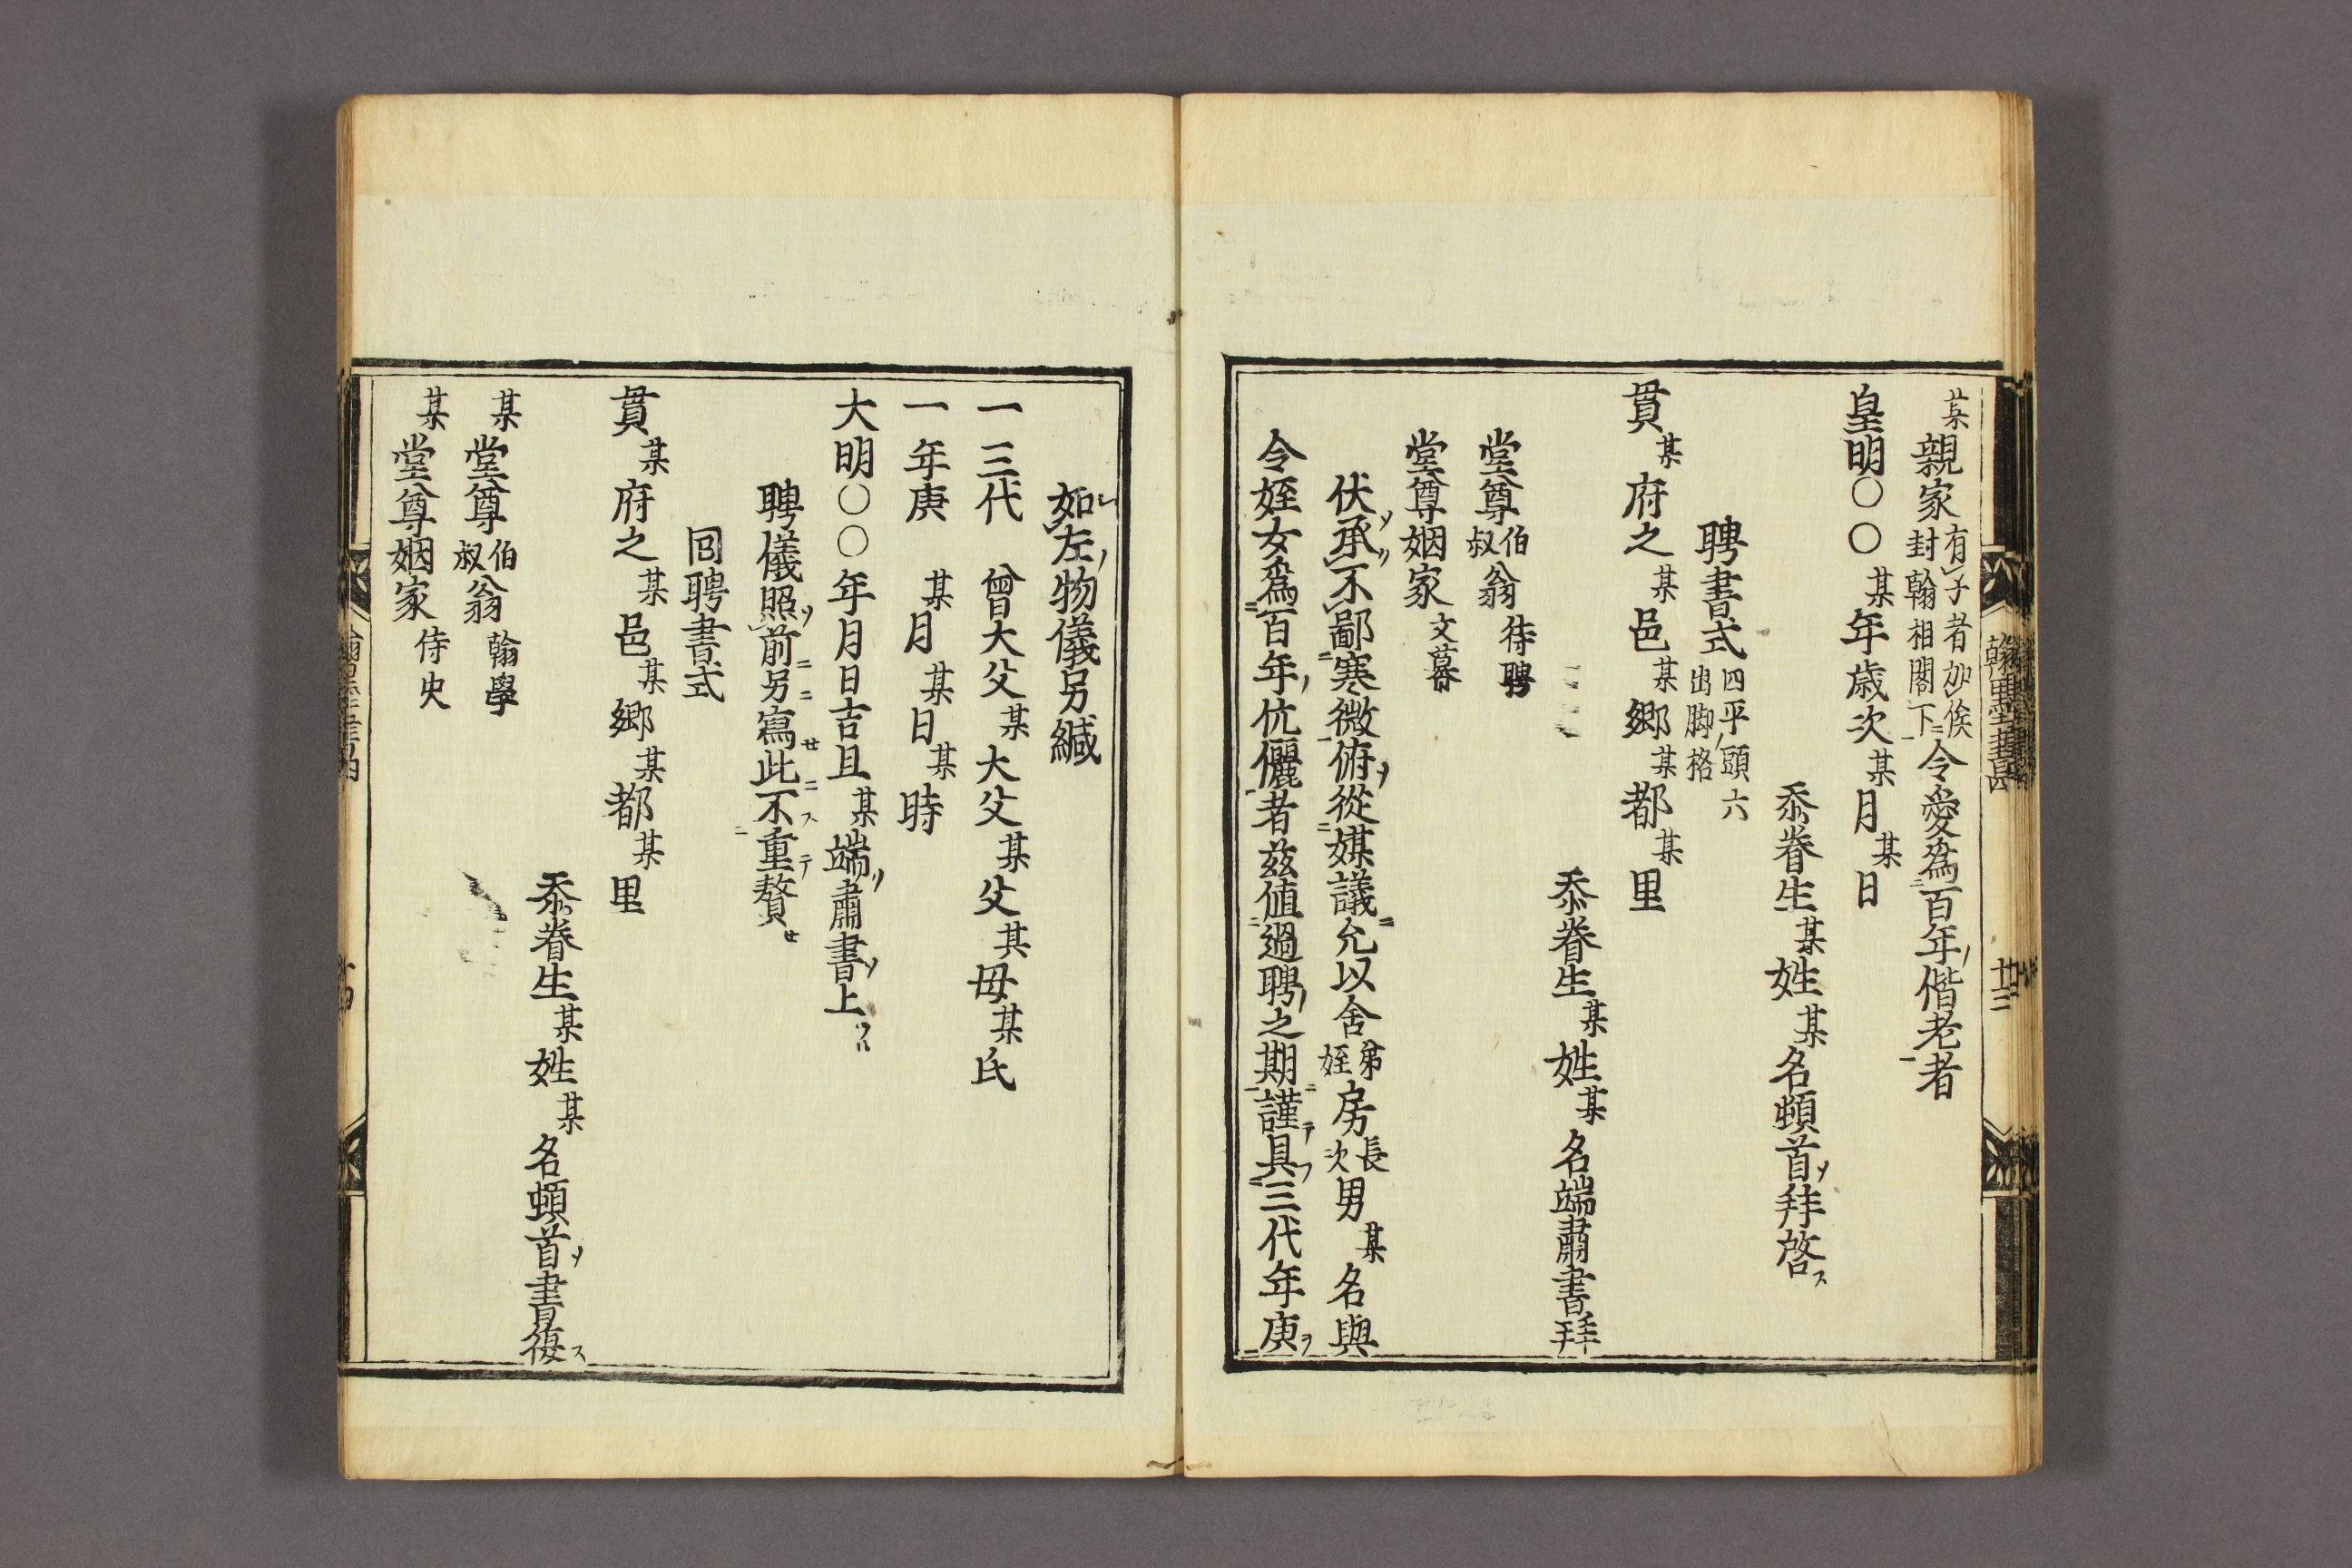 某親家有子者加俟封翰相閣下令愛爲百年偕老者
皇明〇〇某年歳次某月某日
忝眷生某姓某名頓首拜啓ス
聘書式四平頭六出脚格
貫某府之某邑某鄉某都某里
忝眷生某姓某名端肅書拜
堂尊伯叔翁待聘
堂尊姻家文幕
伏承不鄙寒微俯從媒議允以舍弟姪房長次男某名與
令姪女爲百年伉儷者茲値過聘之期謹具三代年庚
如左物儀另緘
一三代 曾大父某大父某父某母某氏
一年庚 某月某日某時
大明〇〇年月日吉旦某端肅書上
聘儀照前另寫此不重贅
回聘書式
貫某府之某邑某鄉某都某里
忝眷生某姓某名頓首書復ス
某堂尊伯叔翁翰學
某堂尊姻家侍史
廿三